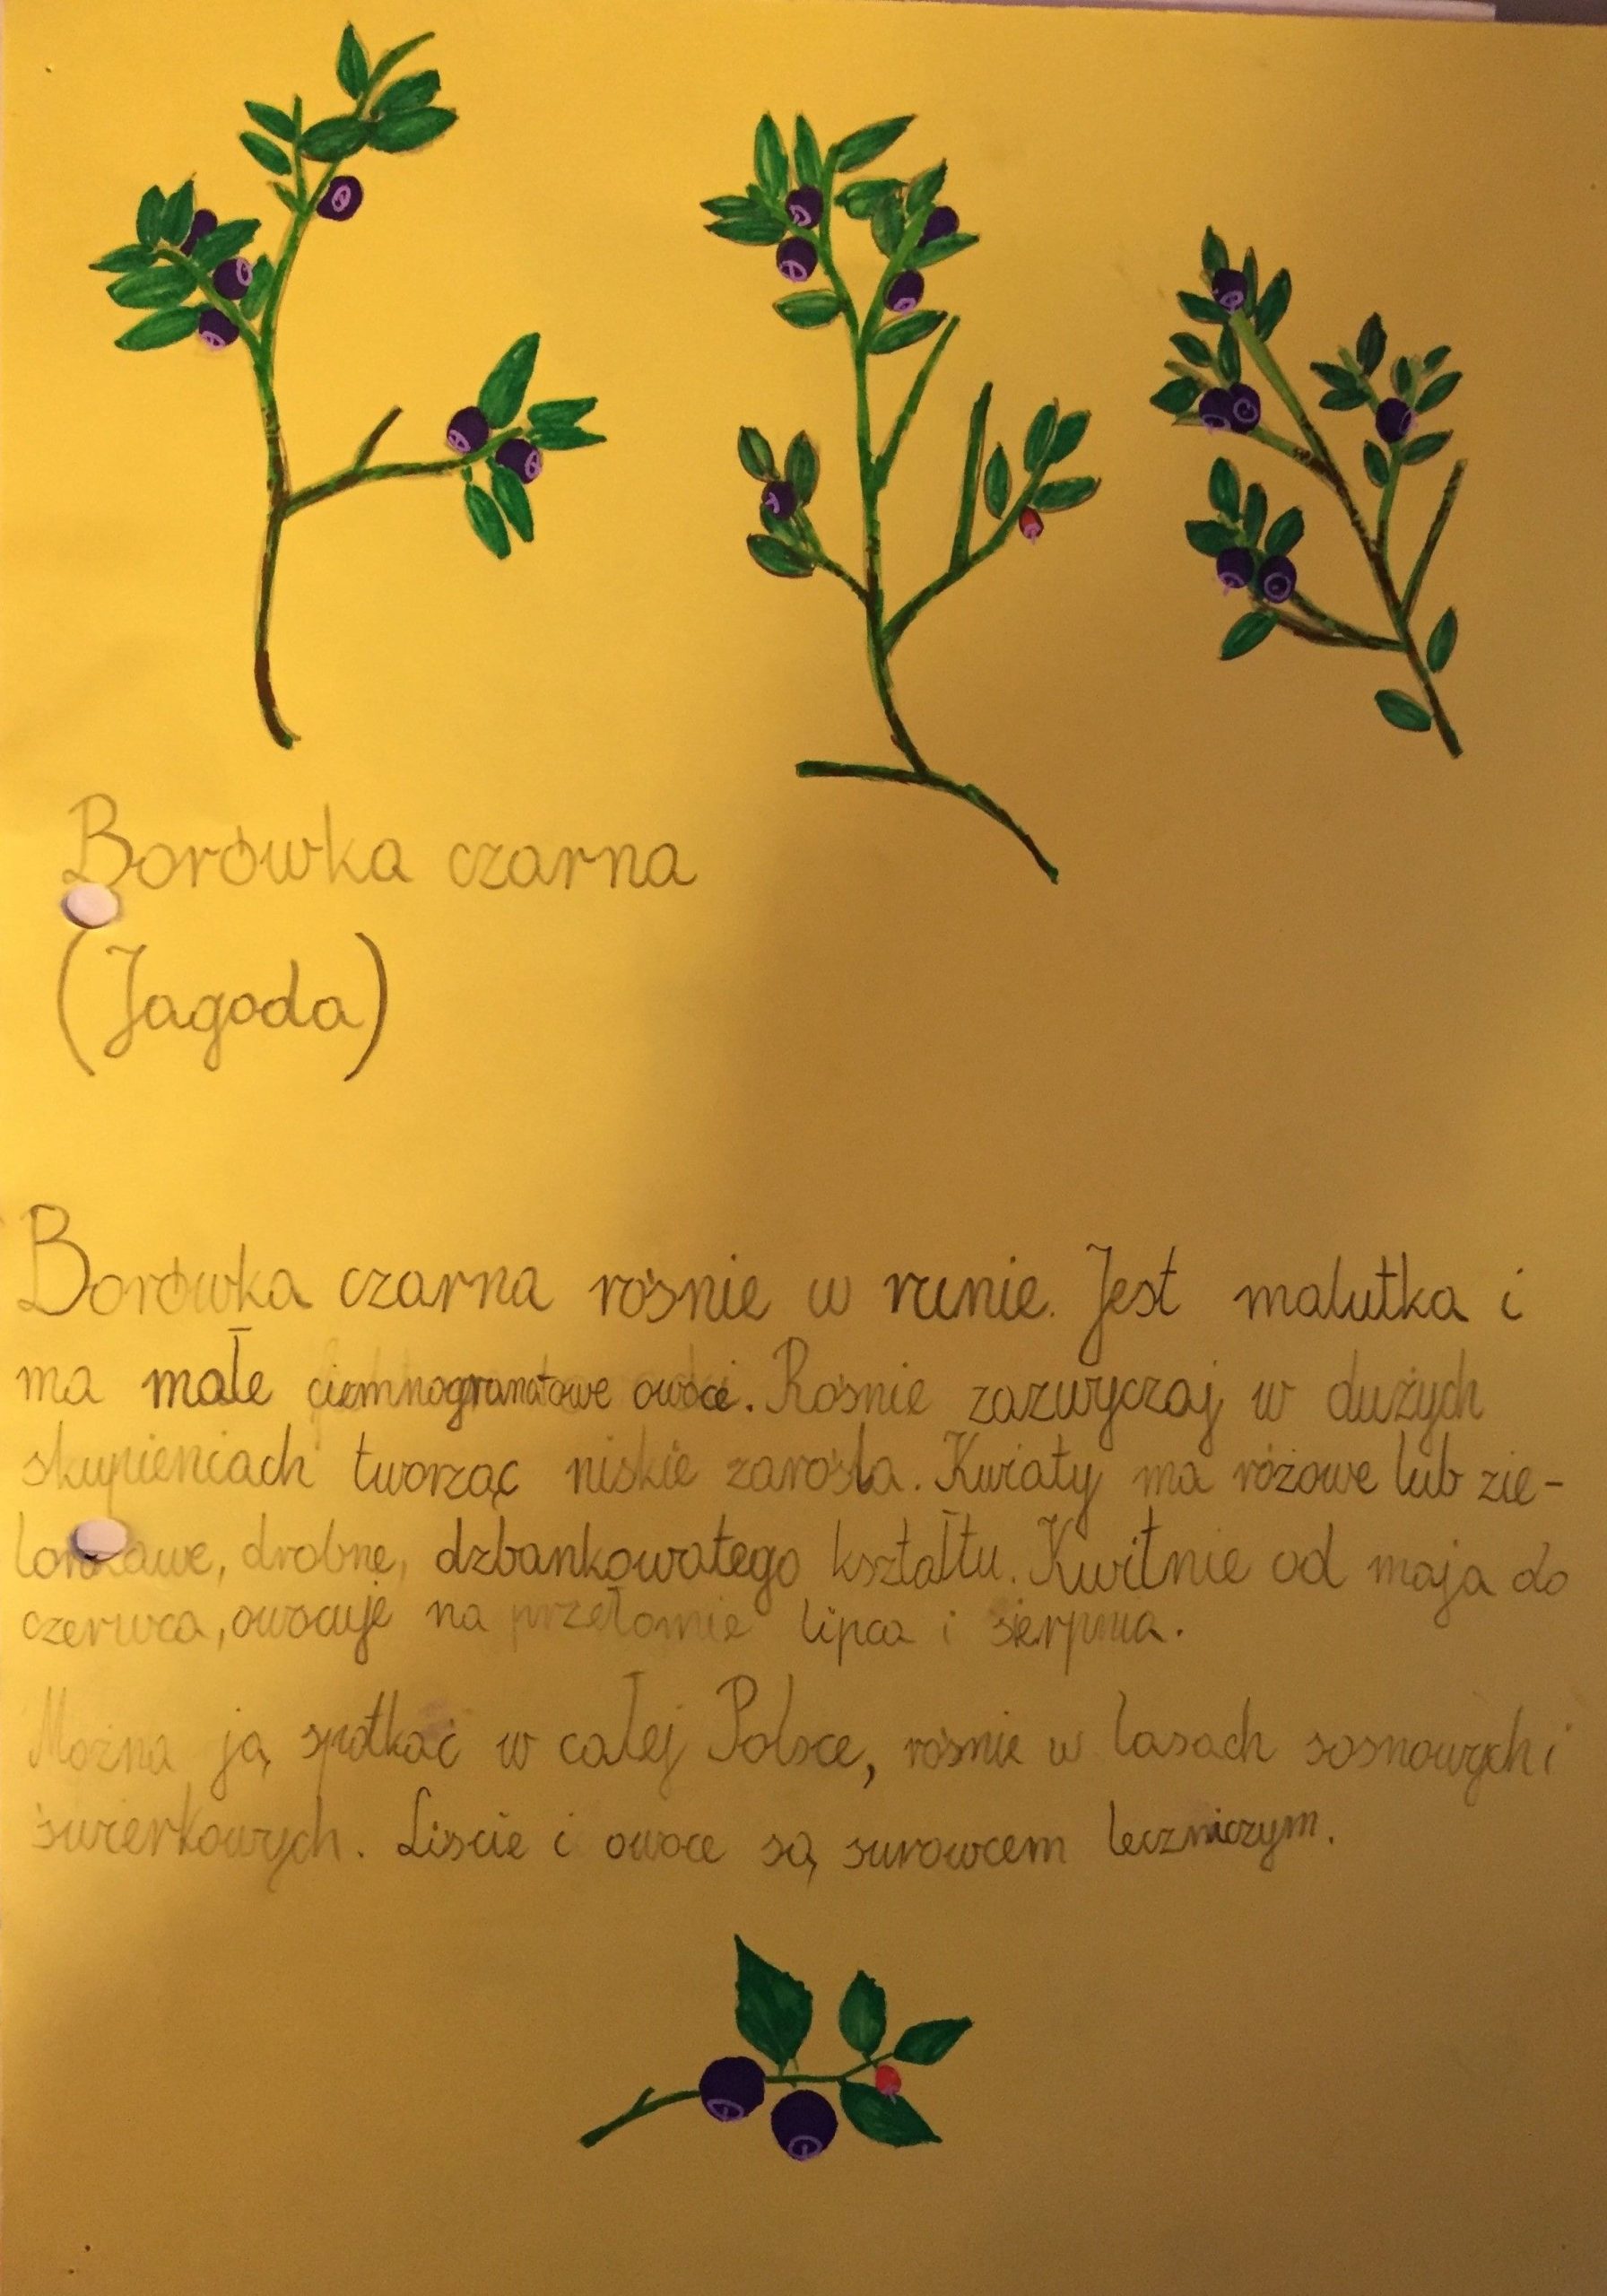 Borówka czarna
(Jagoda)
Borówka czarna rośnie w runie. Jest malutka i
ma małe ciemnogranatowe owoce. Rośnie zazwyczaj w dużych
skupieniach tworząc niskie zarośla. Kwiaty ma różowe lub zie-
lonkawe, drobne, dzbankowatego kształtu. Kwitnie od maja do
czerwca, owocuje na przełomie lipca i sierpnia.
Można ją spotkać w całej Polsce, rośnie w lasach sosnowych i
świerkowych. Liście i owoce są surowcem leczniczym.